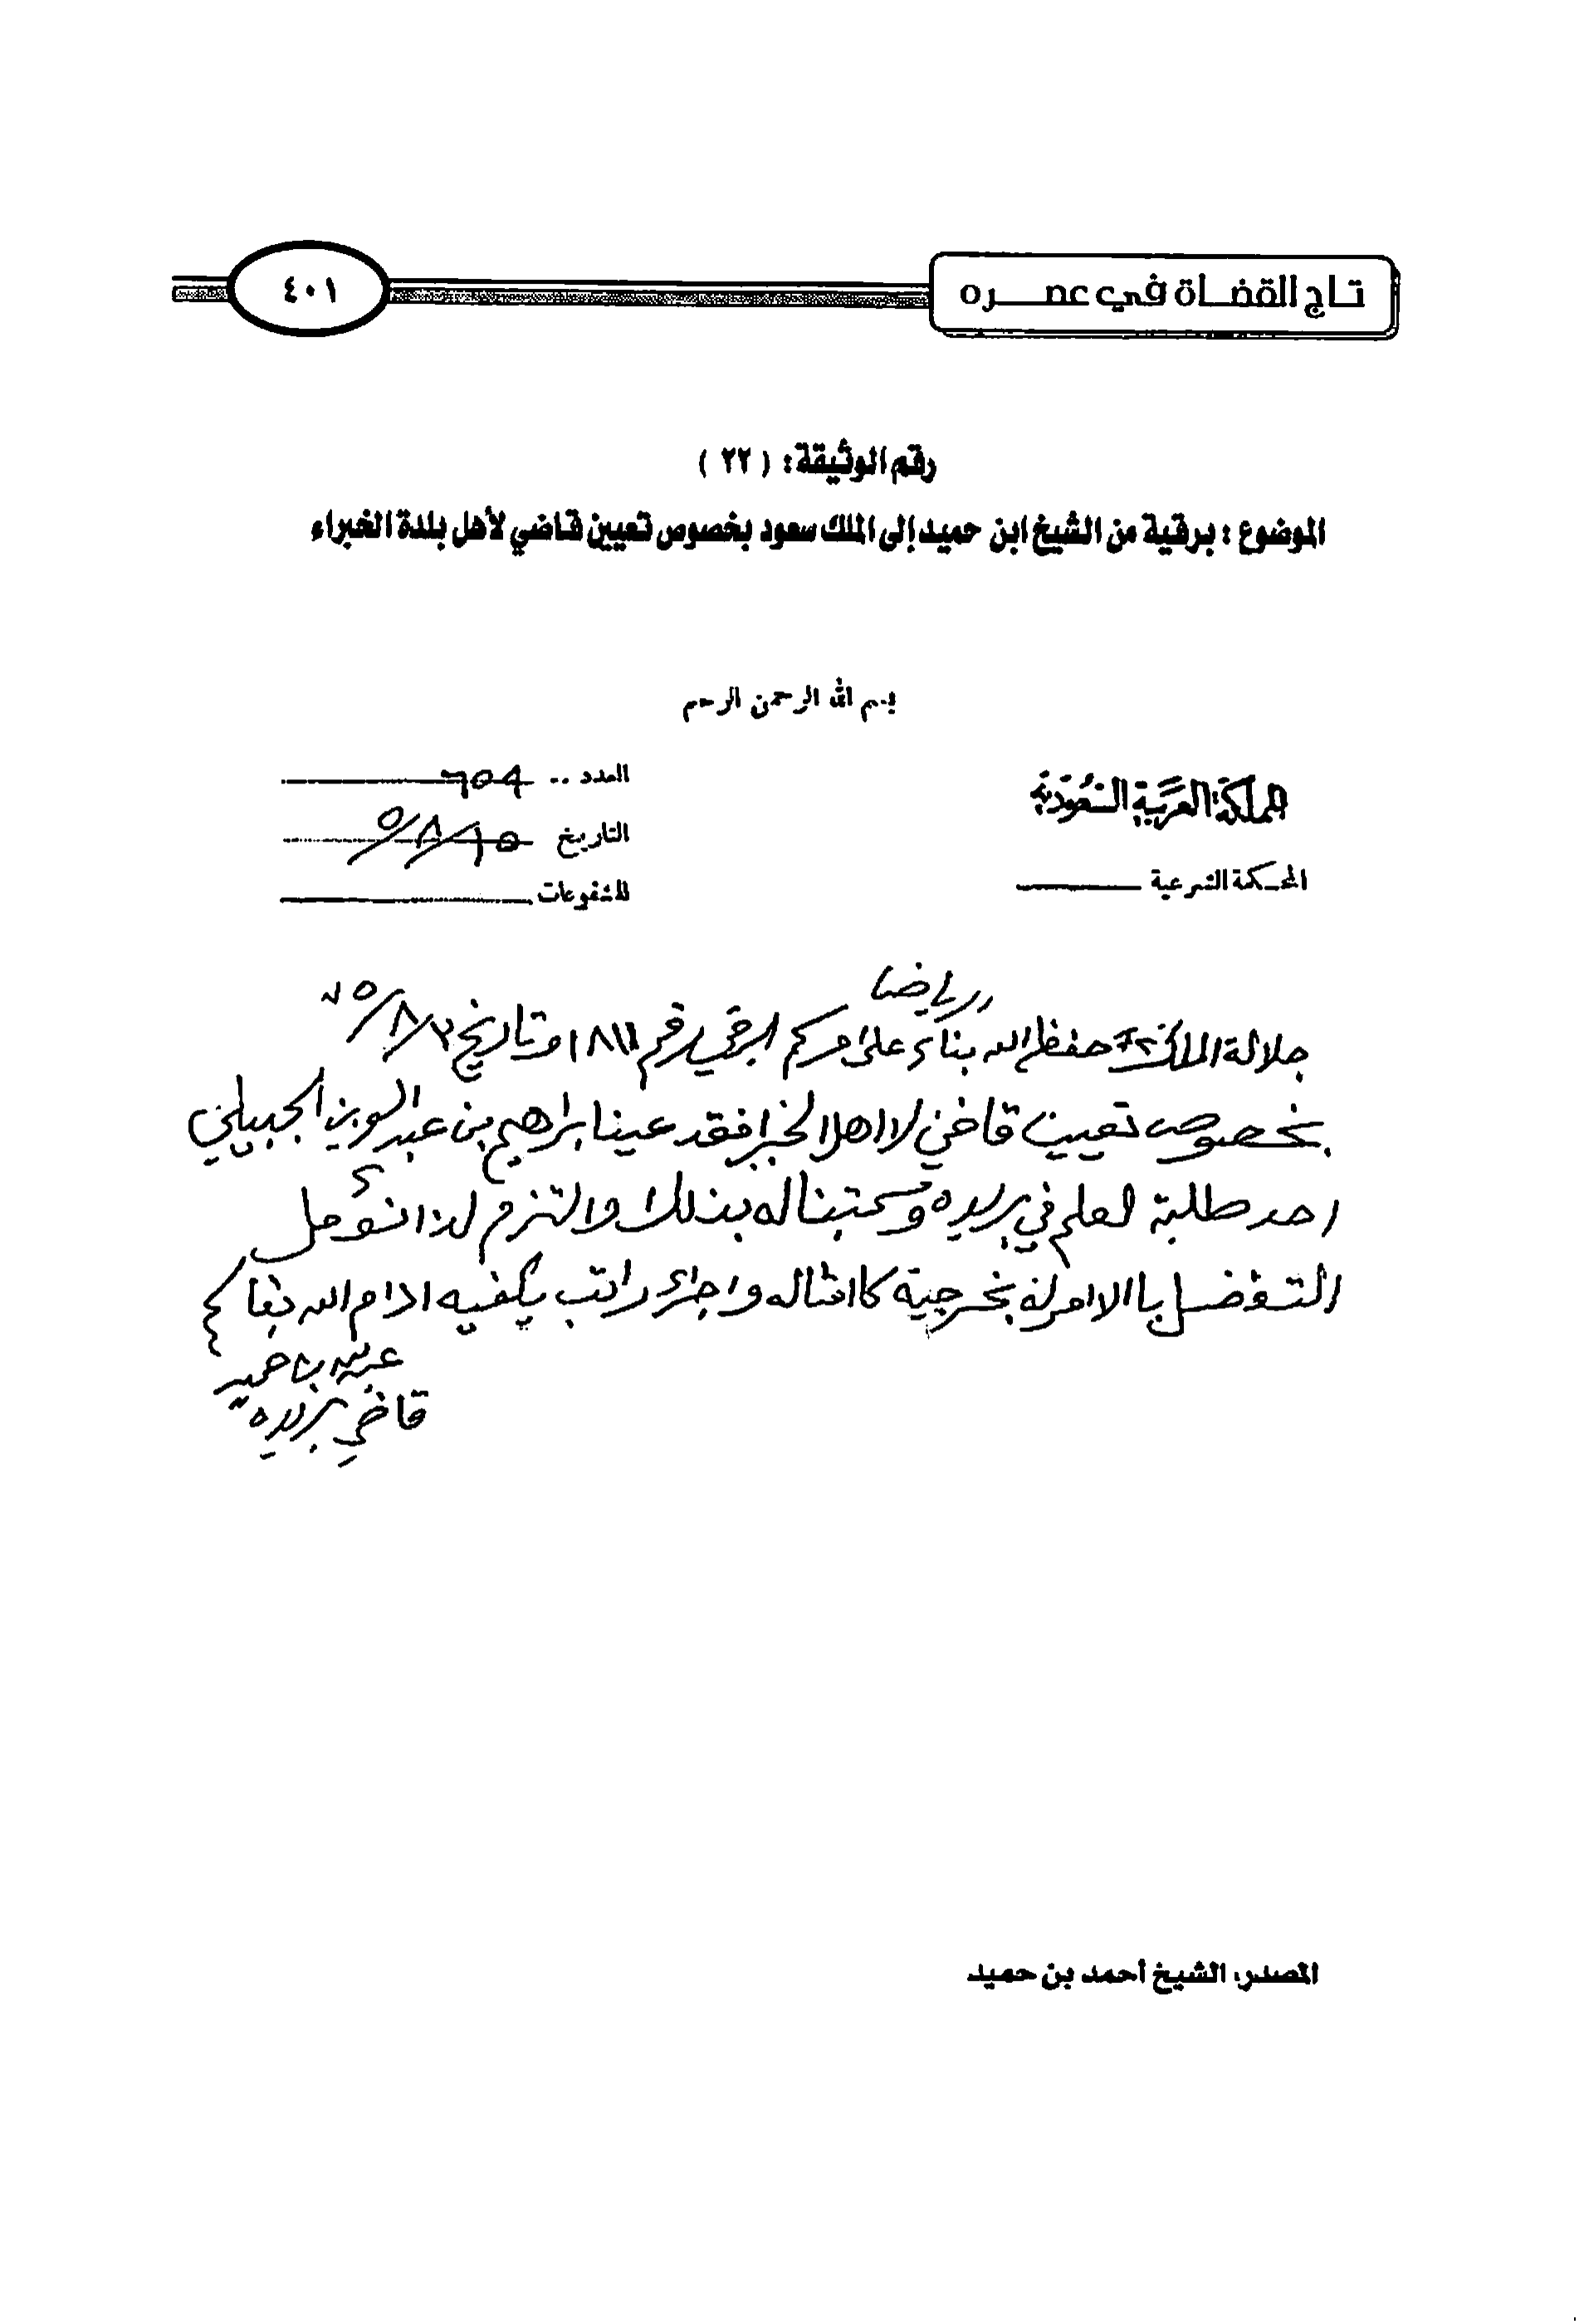 تاج القضاة في عصره
٤٠١
رقم الوثيقة: ( ٢٢ )
الموضوع : برقية من الشيخ ابن حميد إلى الملك سعود بخصوص تعيين قاضي لأهل بلدة الخبراء
بسم الله الرحمن الرحيم
المملكة العربية السعودية
المحكمة الشرعية
العدد ..
التاريخ
المشفوعات
الرياض
جلالة الملك حفظه الله بناء على امركم البرقي رقم وتاريخ
بخصوص تعيين قاضي لااهل الخبرا فقد عينا ابراهيم بن عبد الجبيلي
احد طلبة العلم في بريده وكتبنا له بذلك والتزم لذا نؤمل
التفضل باالامر له بخرجية كاامثاله واجراء راتب يكفيه ادام الله بقاكم
عبدالله بن حميد
قاضي بريده
المصدر: الشيخ أحمد بن حميد